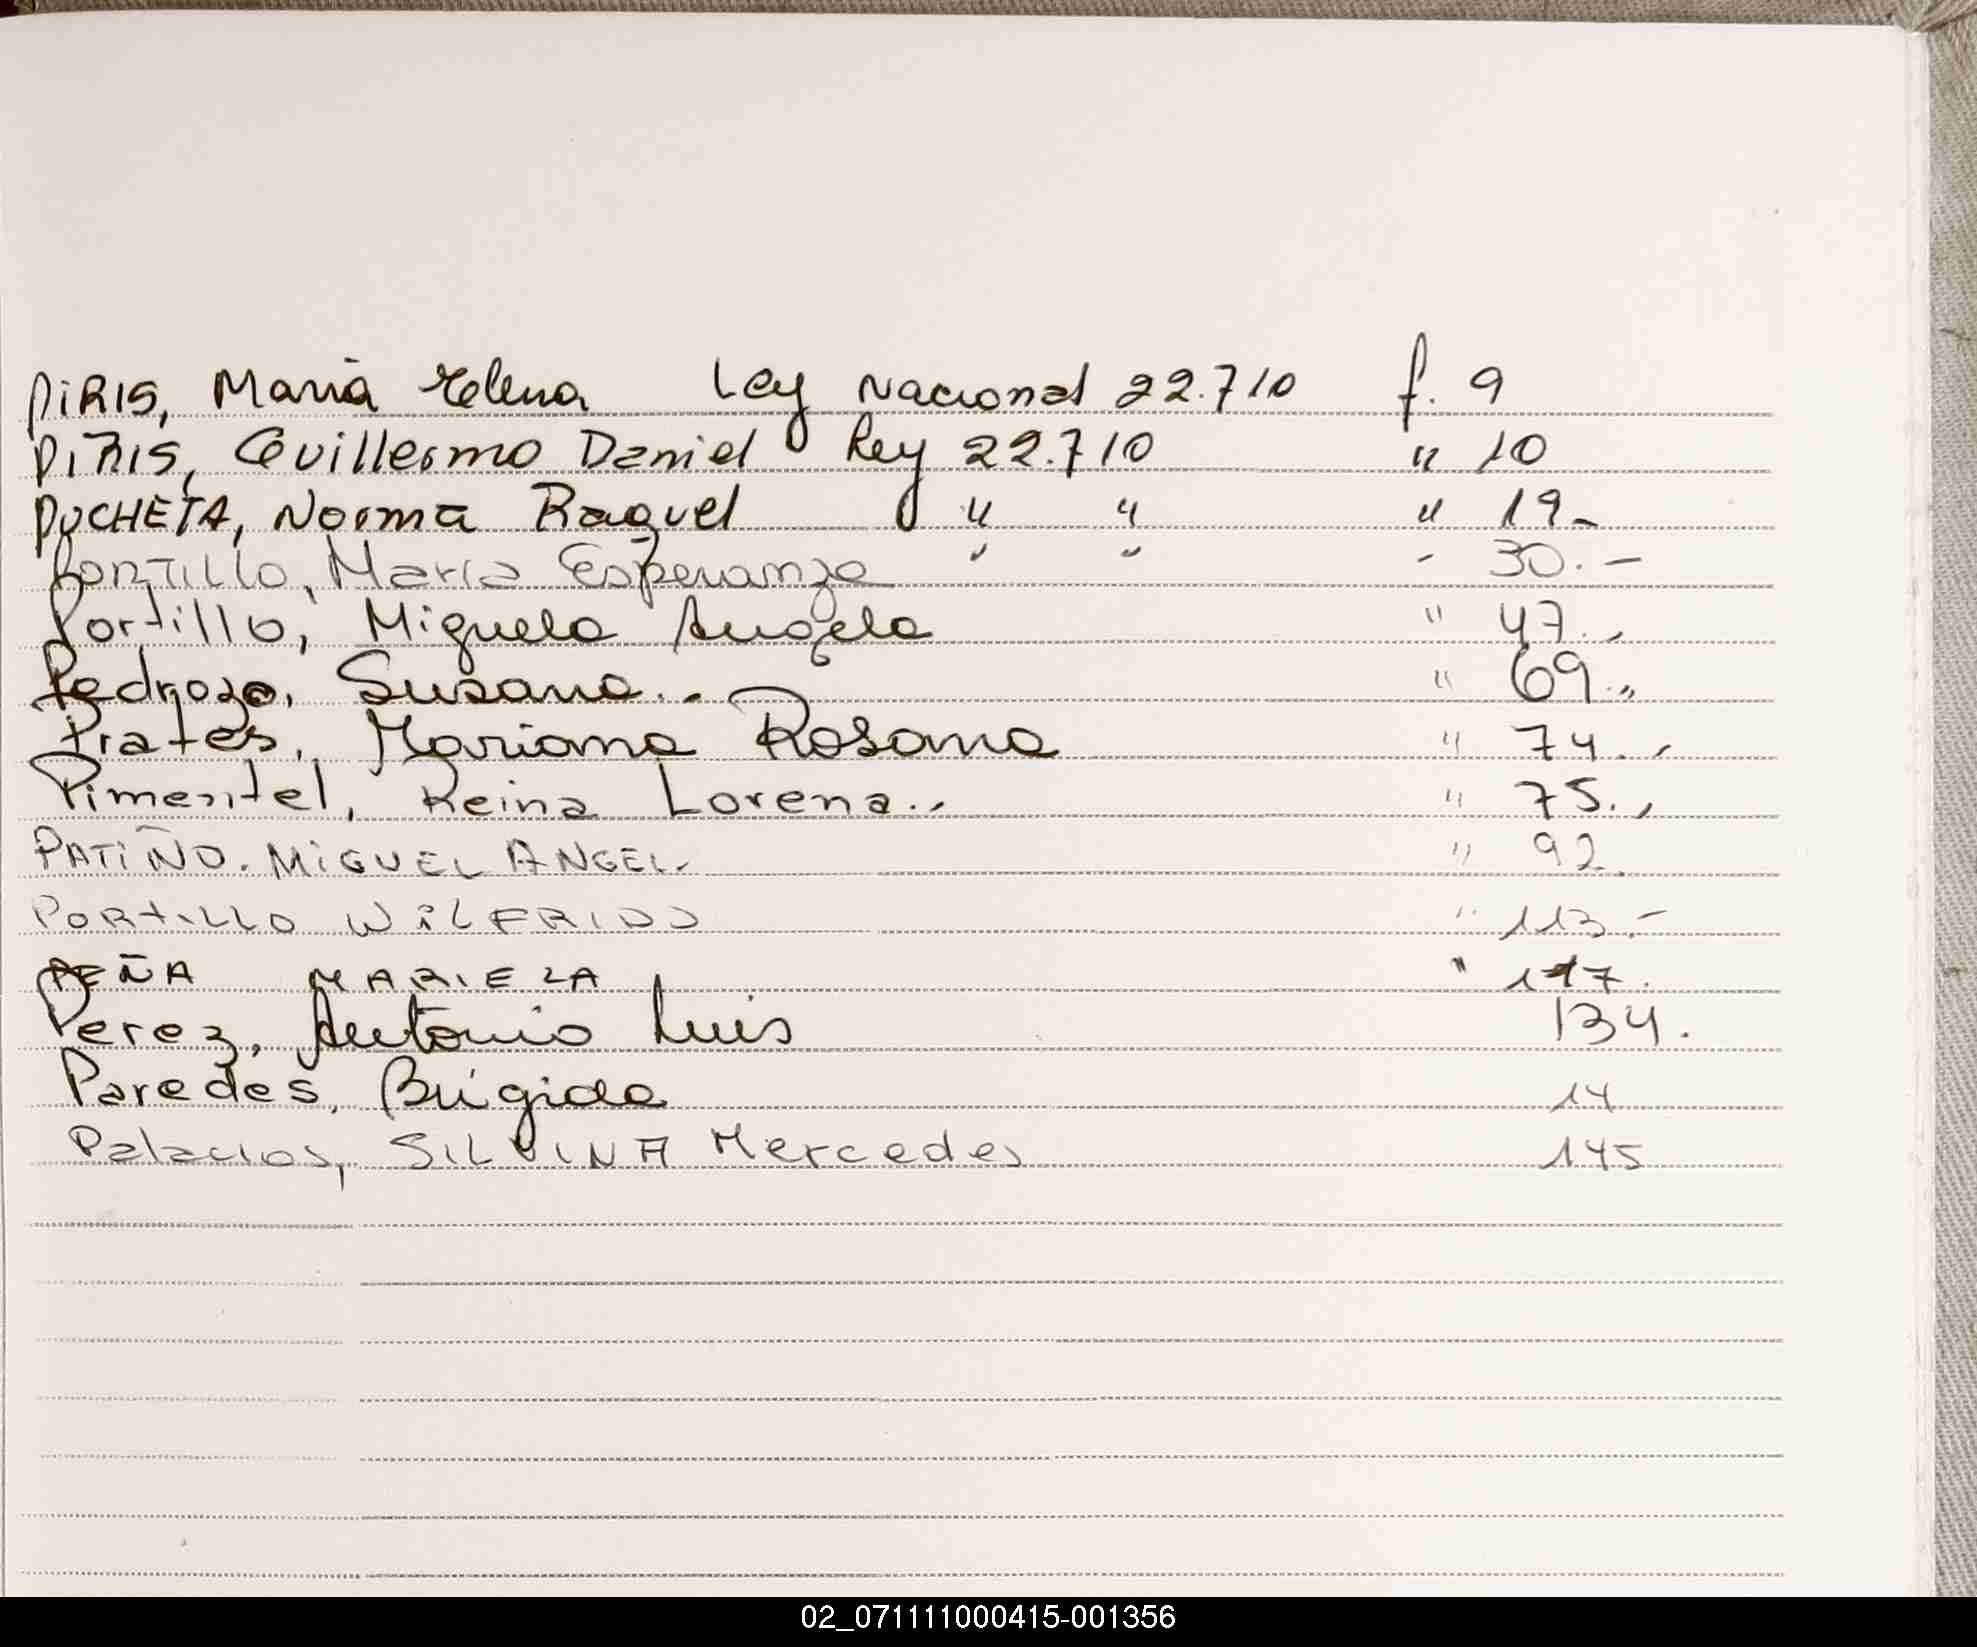 PIRIS, María Elena Ley Nacional 22.710 f. 9
PIRIS, Guillermo Daniel Ley 22.710 " 10
PUCHETA, Norma Raquel " " " 19-
PORTILLO, María Esperanza " " - 30.-
Portillo, Miguela Angela " 47.,
Pedrozo, Susana.. " 69.,,
Prates, Mariana Rosana " 74..,
Pimentel, Reina Lorena.. " 75.,
PATIÑO. MIGUEL ANGEL. " 92.
PORTILLO WILFRIDO " 113.-
PEÑA MARIELA " 117.
Perez, Antonio Luis 134.
Paredes, Brígida 14
Palacios, SILVINA Mercedes 145
02_071111000415-001356